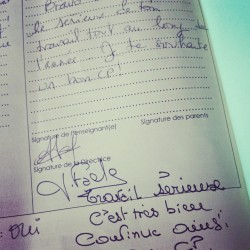 Bravo
le sérieux de ton
travail tout au long de
l'année. Je te souhaite
un bon CP!
Signature de l'enseignant(e)
Signature des parents
Signature de la directrice
travail sérieuse
C'est très bien
Continue ainsi
oui